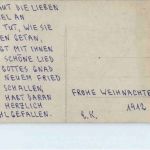 AUT DIE LIEBEN
EL AN
TUT, WIE SIE
EN GETAN,
GT MIT IHNEN
SCHÖNE LIED
GOTTES GNAD
NEUEM FRIED
SCHALLEN,
HAET DARAN
HERZLICH
LGEFALLEN.
FROHE WEIHNACHTE
1912